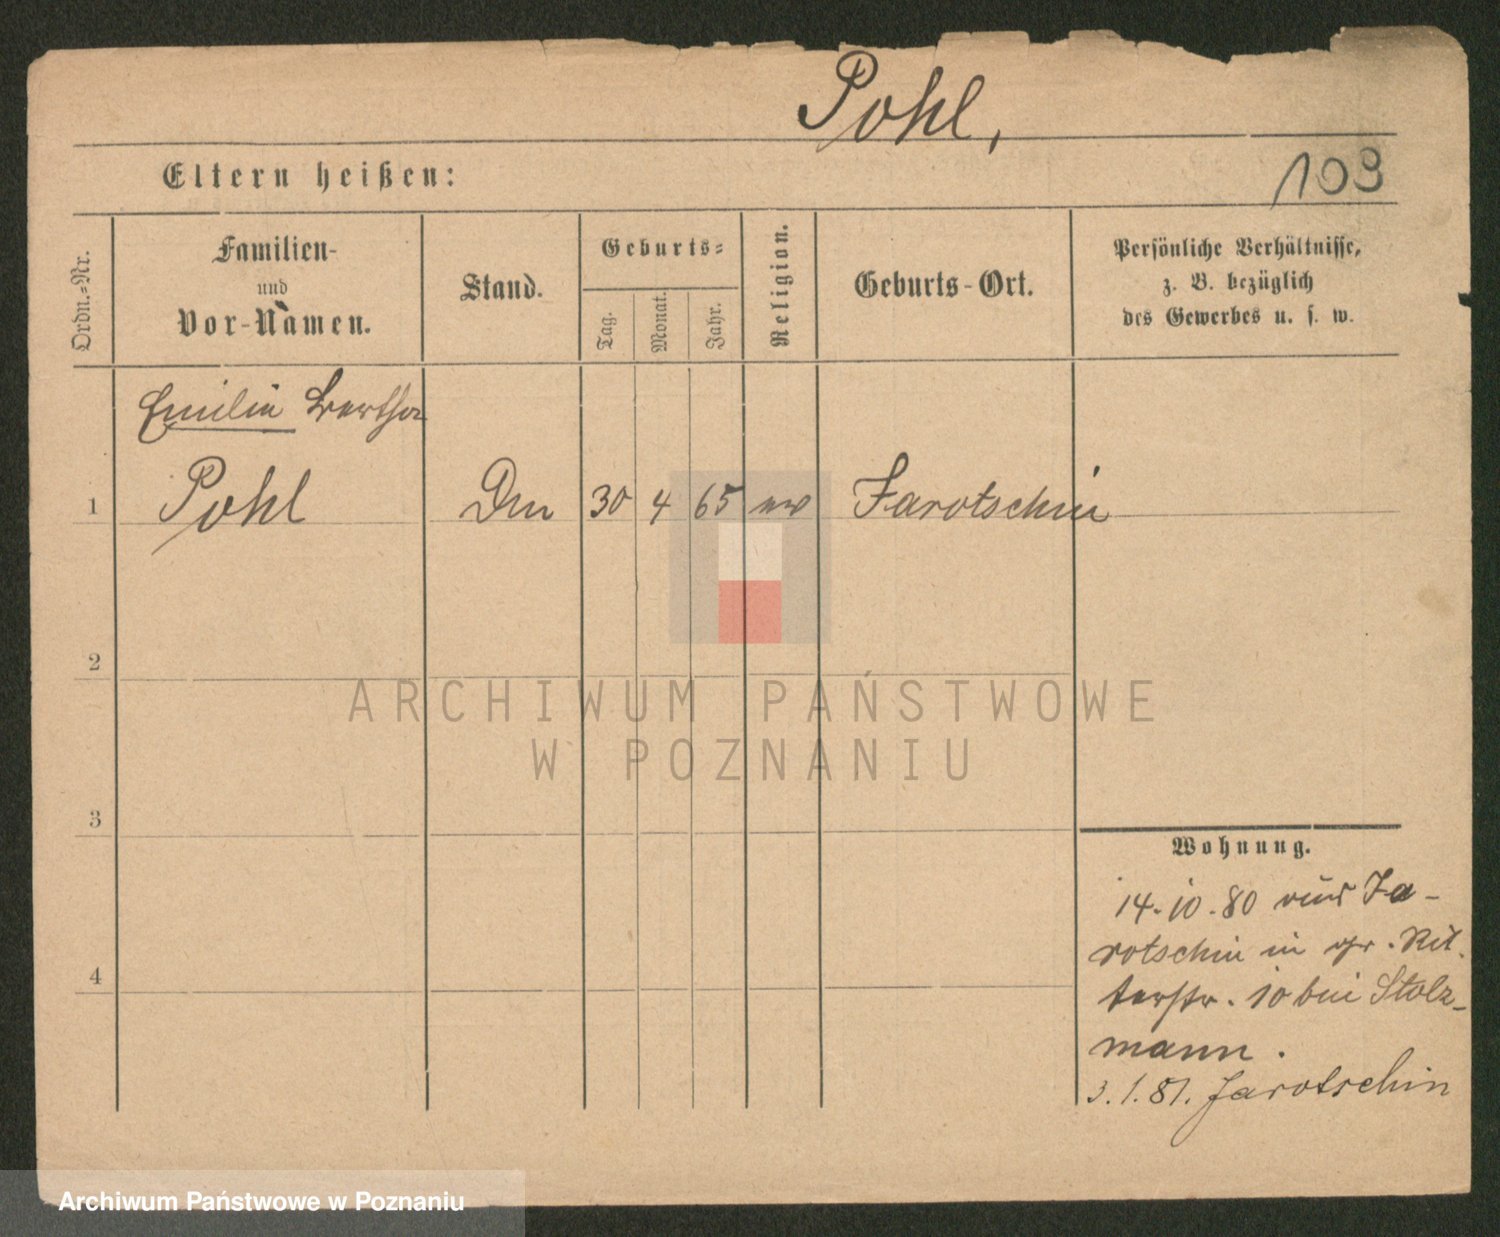 Pohl,
Eltern heißen:
103
Ordn.-Nr.
Familien-
und
Vor-Namen.
Stand.
Geburts-
Tag.
Monat.
Jahr.
Religion.
Geburts-Ort.
Persönliche Verhältnisse,
z. B. bezüglich
des Gewerbes u. s. w.
Emilie Bertha
1 Pohl 30 4 65 ev Jarotschin
2
3
4
Wohnung.
14.10.80 aus Ja-
rotschin in gr. Rit-
terstr. 10 bei Stolz-
mann.
3.1.81. Jarotschin
ARCHIWUM PAŃSTWOWE
W POZNANIU
Archiwum Państwowe w Poznaniu